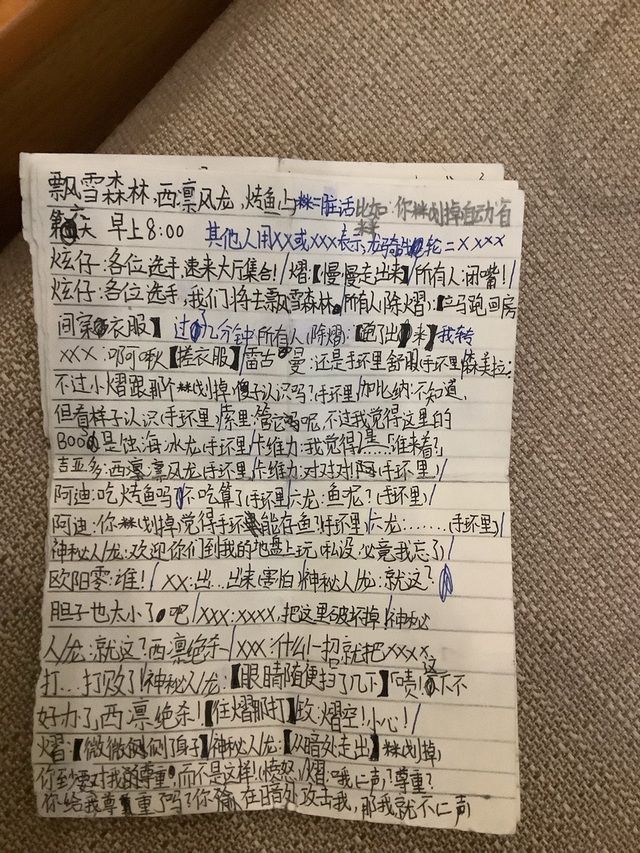 飘雪森林,西凛风龙,烤鱼,与**=脏话 比如:你**(划掉自动省
第六天 早上8:00 其他人用XX或XXX表示,龙骑战轮=XXXX
炫仔:各位选手,速来大厅集合!/熠:【慢慢走出来】/所有人:闭嘴!/
炫仔:各位选手,我们将去飘雪森林。所有人(除熠):【立马跑回房
间穿衣服】 过了几分钟 所有人(除熠):【跑了出来】我转
XXX:啊啊啾【搓衣服】/雷古曼:还是手环里舒服(手环里)/
不过小熠跟那个**(划掉)傻子认识吗?(手环里)/加比纳:不知道,
但看样子认识(手环里)/索里:管它吗呢,不过我觉得这里的
BOO是蚀海冰龙(手环里)/卡维力:我觉得是……「谁来着?」
吉亚多:西凛风龙(手环里)/卡维力:对对对!(手环里)/
阿迪:吃烤鱼吗?不吃算了(手环里)/六龙:鱼呢?(手环里)/
阿迪:你**(划掉)觉得手环能存鱼?(手环里)/六龙:……(手环里)/
神秘人/龙:欢迎你们到我的地盘上玩(私设,必竟我忘了)/
欧阳零:谁!/XX:出…出来(害怕)/神秘人/龙:就这?
胆子也太小了吧/XXX:XXXX,把这里破坏掉/神秘
人/龙:就这?西凛绝杀/XXX:什么!一招就把XXXX
打…打败了/神秘人/龙:【眼睛随便扫了几下】「啧!这下不
好办了,西凛绝杀!【往熠那打】/:熠空!小心!/
熠:【微微侧了身子】/神秘人/龙:【从暗处走出】**(划掉)
你至少要对我尊重,而不是这样!(愤怒)/熠:哦(二声)?尊重?
你给我尊重了吗?你偷在暗处攻击我,那我就不(二声